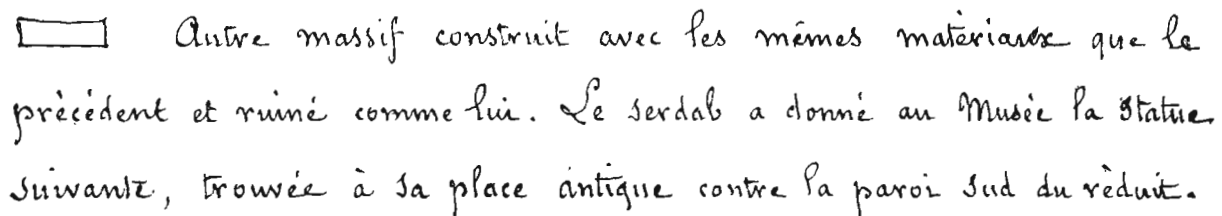 Autre massif construit avec les mêmes matériaux que le
précédent et ruiné comme lui. Le serdab a donné au Musée la statue
suivante, trouvée à sa place antique contre la paroi sud du réduit.